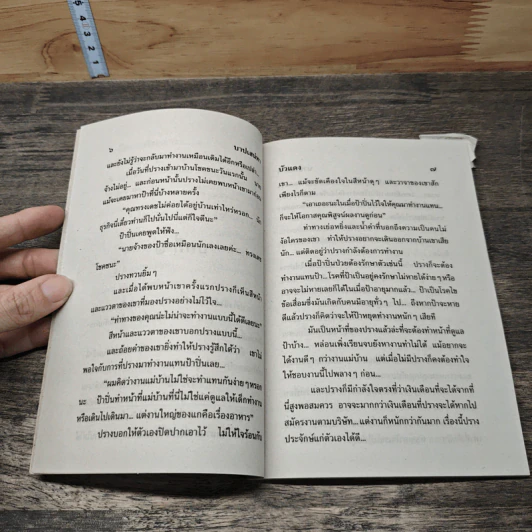 ๖
บาปเสน่หา
และยังไม่รู้ว่าจะกลับมาทำงานเหมือนเดิมได้อีกหรือเปล่า
เมื่อวันที่ปรางเข้ามาบ้านโชคชนะวันแรกนั้น
จ้างไม่อยู่... และก่อนหน้านั้นปรางไม่เคยพบหน้าเขามาก่อน
แม้จะเคยมาหาป้าที่นี่บ้างหลายครั้ง
"คุณทรงเดชไม่ค่อยได้อยู่บ้านเท่าไหร่หรอก...
ธุรกิจนี่เดี๋ยวท่านก็ไปนั่นไปนี่แต่ก็ใจดีนะ"
ป้าปิ่นเคยพูดให้ฟัง
"นายจ้างของป้าชื่อเหมือนนักเลงเลยค่ะ... ทรงเดช
โชคชนะ"
ปรางหวนยิ้มๆ
และเมื่อได้พบหน้าเขาครั้งแรกปรางก็เห็นสีหน้า
และแววตาของเขาที่มองปรางอย่างไม่ไว้ใจ...
"ท่าทางของคุณน่ะไม่น่าจะทำงานแบบนี้ได้ดีเลยนะ"
สีหน้าและแววตาของเขาบอกปรางแบบนี้...
และถ้อยคำของเขายิ่งทำให้ปรางรู้สึกได้ว่า เขาไม่
พอใจกับการที่ปรางมาทำงานแทนป้าปิ่นเลย...
"ผมคิดว่างานแม่บ้านไม่ใช่จะทำแทนกันง่ายๆหรอก
นะ ป้าปิ่นทำหน้าที่แม่บ้านที่นี่ไม่ใช่แค่ดูแลให้เด็กทำงาน
หรือเดินไปเดินมา... แต่งานใหญ่ของแกคือเรื่องอาหาร"
ปรางบอกให้ตัวเองปิดปากเอาไว้ ไม่ให้ใจร้อนกับ
บัวแดง
๗
เขา... แม้จะขัดเคืองใจในสีหน้าดุๆ และวาจาของเขาสัก
เพียงไรก็ตาม
"เอาเถอะนะในเมื่อป้าปิ่นไว้ใจให้คุณมาทำงานแทน...
ก็จะให้โอกาสคุณพิสูจน์ผลงานดูก่อน"
ท่าทางเย่อหยิ่งและน้ำคำที่บอกถึงความเป็นคนไม่
ง้อใครของเขา ทำให้ปรางอยากจะเดินออกจากบ้านเขาเสีย
นัก... แต่ติดอยู่ว่าปรางต้องการทำงาน
เมื่อป้าปิ่นป่วยต้องรักษาตัวเช่นนี้ ปรางก็จะต้อง
ทำงานแทนป้า...โรคที่ป้าเป็นอยู่คงรักษาไม่หายได้ง่ายๆหรือ
อาจจะไม่หายเลยก็ได้ในเมื่อป้าอายุมากแล้ว... ป้าเป็นโรคไข
ข้อเสื่อมซึ่งมันเกิดกับคนมีอายุทั่วๆ ไป... ถึงหากป้าจะหาย
ดีแล้วปรางก็คิดว่าจะให้ป้าหยุดทำงานหนักๆ เสียที
มันเป็นหน้าที่ของปรางแล้วล่ะที่จะต้องทำหน้าที่ดูแล
ป้าบ้าง... หล่อนเพิ่งเรียนจบยังหางานทำไม่ได้ แม้อยากจะ
ได้งานดีๆ กว่างานแม่บ้าน แต่เมื่อไม่มีปรางก็คงต้องทำใจ
ให้ชอบงานนี้ไปพลางๆ ก่อน...
และปรางก็มีกำลังใจตรงที่ว่าเงินเดือนที่จะได้จากที่
นี่สูงพอสมควร อาจจะมากกว่าเงินเดือนที่ปรางจะได้หากไป
สมัครงานตามบริษัท...แต่งานก็หนักกว่ากันมาก เรื่องนี้ปราง
ประจักษ์แก่ตัวเองได้ดี...
5
4
3
2